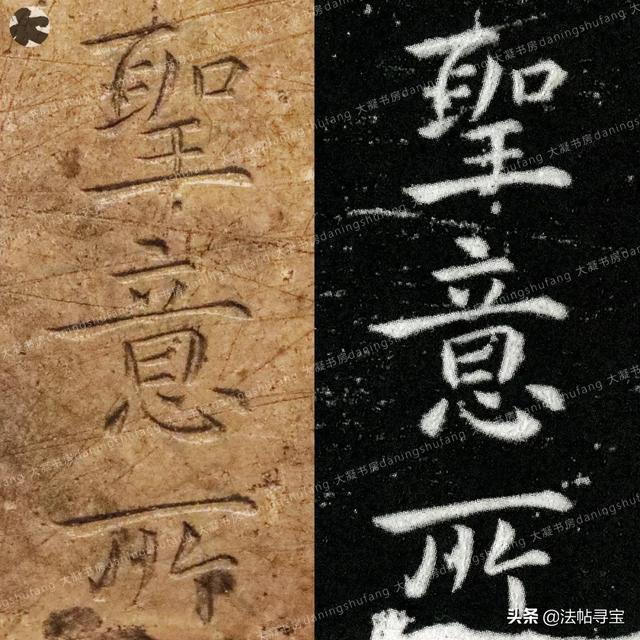 聖意所
聖意所
大甯书房daningshufang
头条 @法帖寻宝